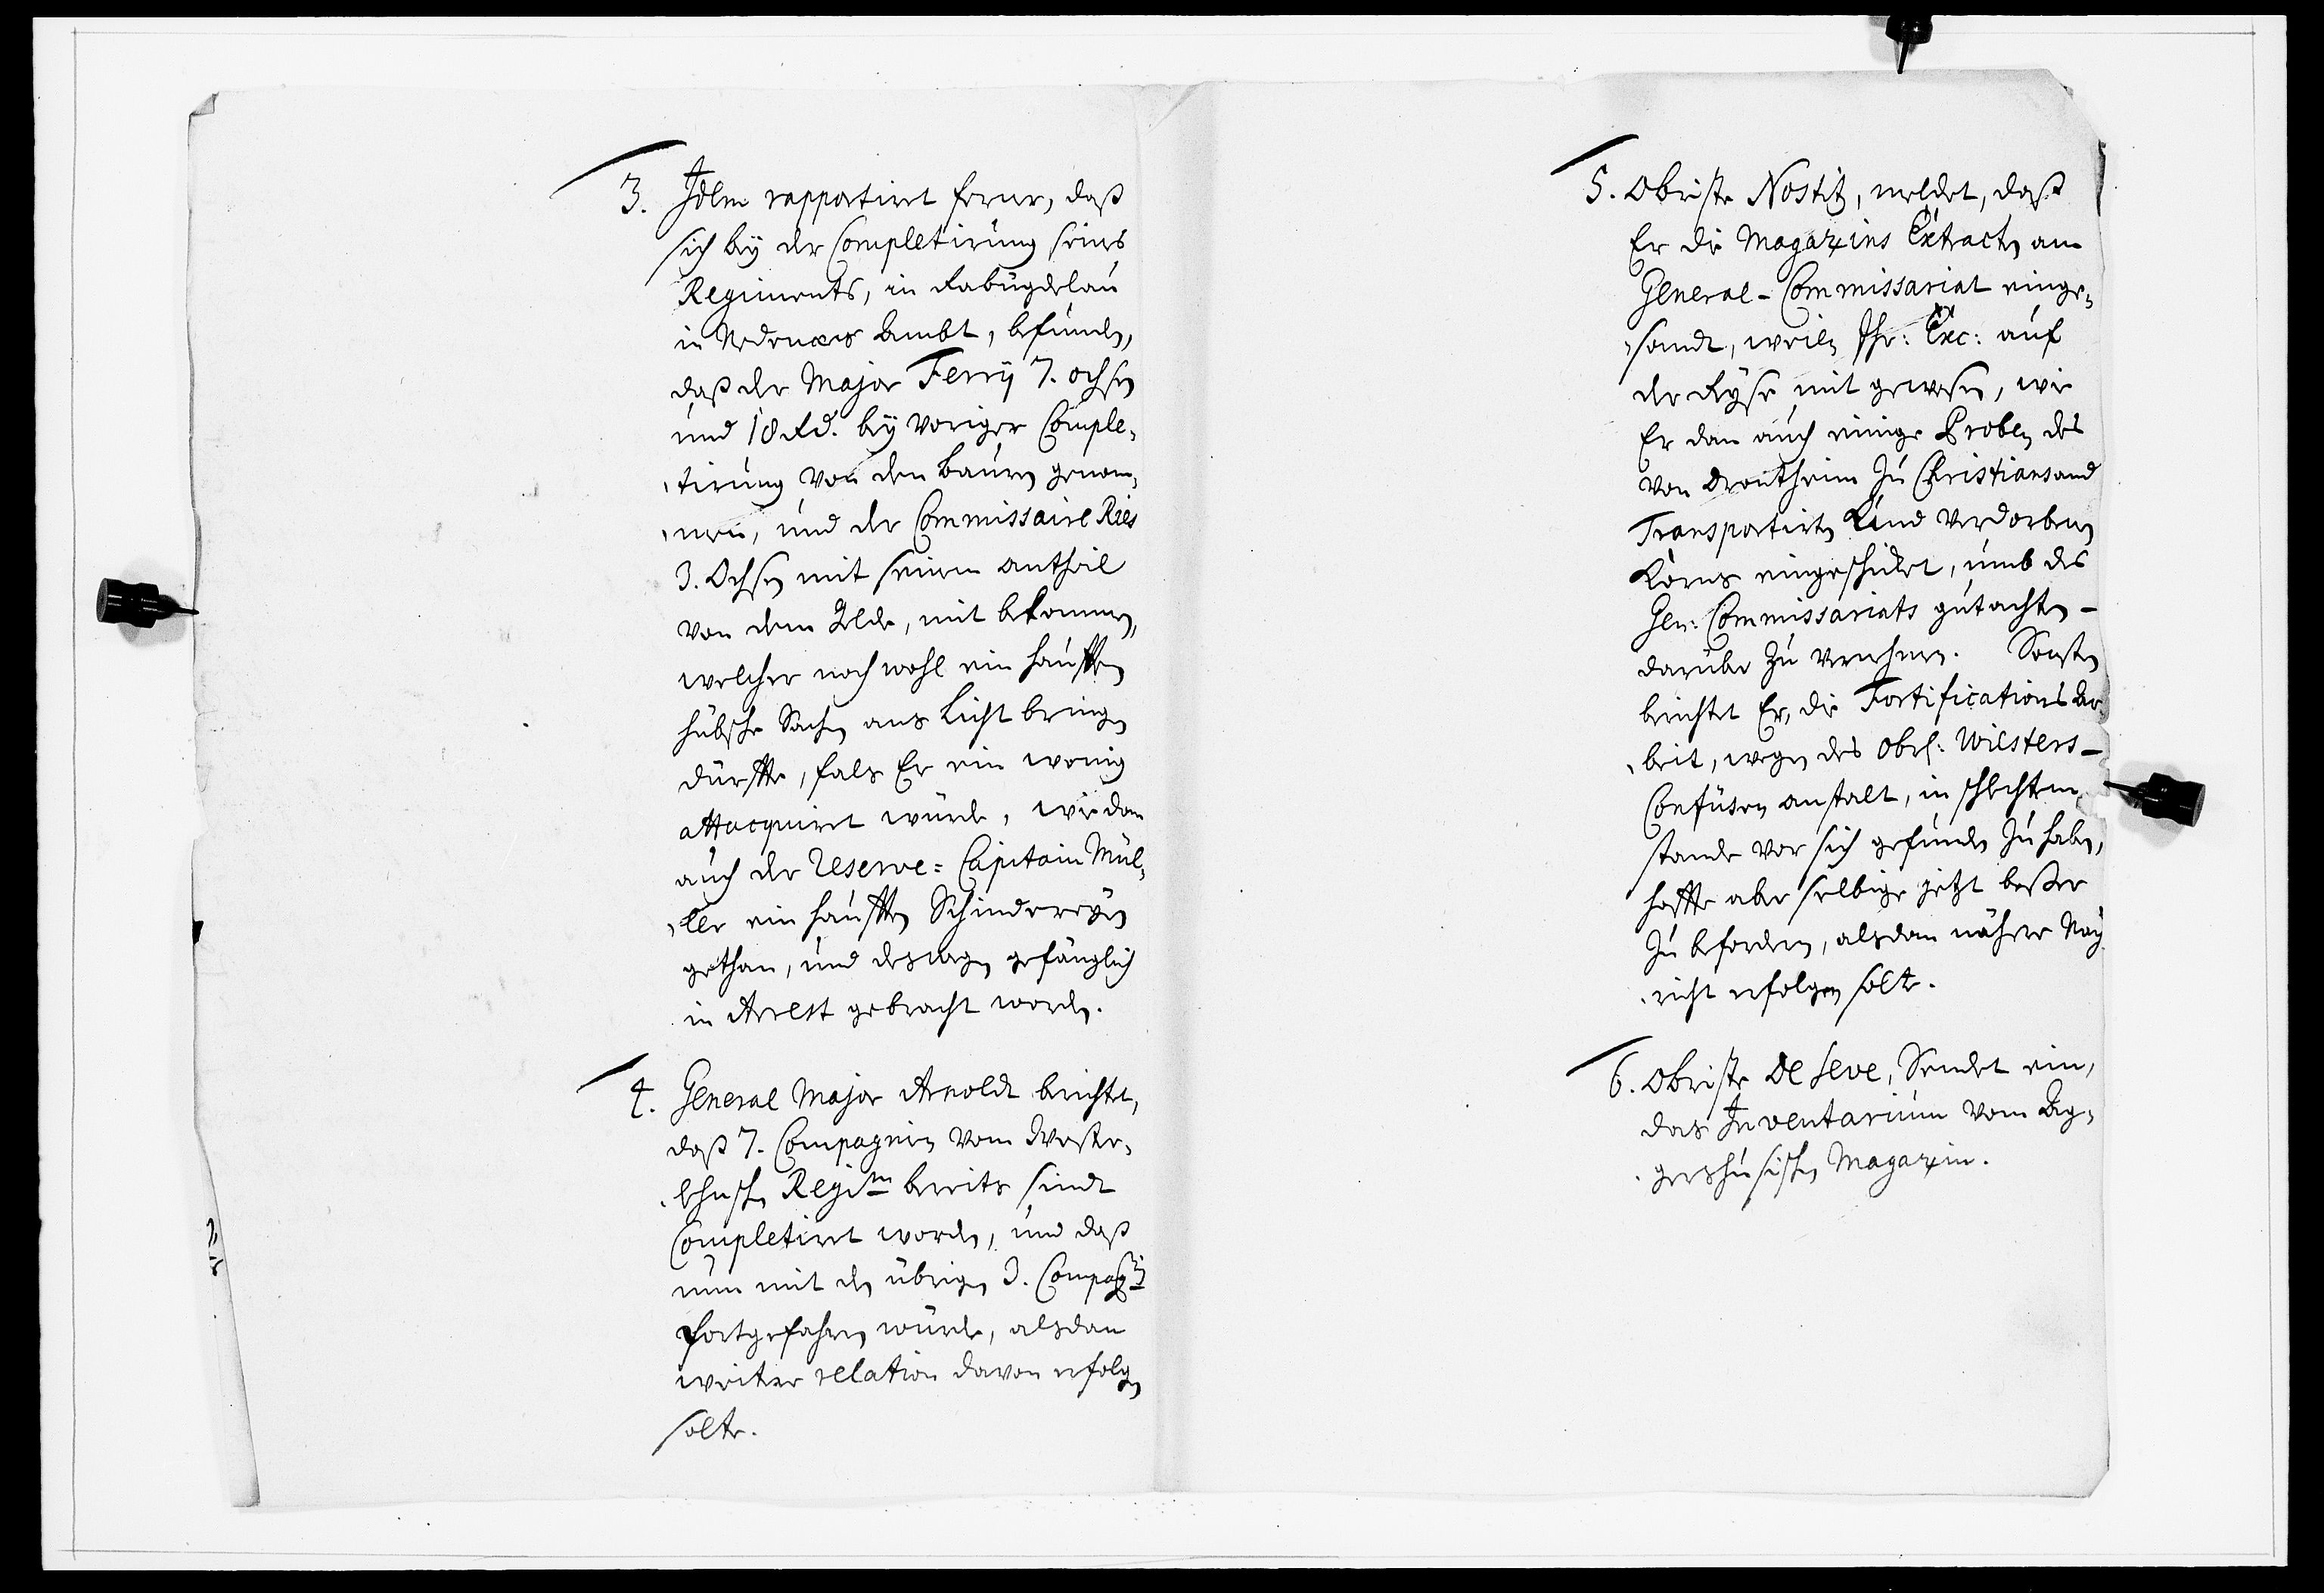 3. Idem rapportiret ferner, daß
sich bey der Completirung seines
Regiments, in Rabügdelau
in Nedenæs Ambt, befunden,
daß der Major Ferrÿ 7. ochsen
und 18 Rd. bey voriger Comple-
tirung von den Bauren genom-
men, und der Commissaire Ries
3. Ochsen mit seinem antheil
von dem Gelde, mit bekommen,
welcher noch wohl ein hauffen
hübsche Sachen ans Licht bringen
dürffte, fals Er ein wenig
attacquiret würde, wie dan
auch der Reserve-Capitain Mül-
ler ein hauffen Schindereyen
gethan, und deswegen gefänglich
in Arrest gebracht worden.
4. General Major Arnoldt berichtet,
daß 7. Compagnien vom Wester-
lehnsch. Regim bereits sindt
Completiret worden, und daß
nun mit den übrigen 3. Compag
fortgefahren würde, alsdan
weiter relation davon erfolgen
solte.
5. Obriste Nostitz, meldet, daß
Er die Magazins Extracten am
General-Commissariat einge-
sandt, weilen Ihr: Exc: auf
der Reyse mit gewesen, wie
Er dan auch einige Proben des
von Drontheim zu Christiansand
Transportirten und verdorbenen
Korns eingeschicket, umb des
Gen: Commissariats gutachten
darüber zu vernehmen. Sonsten
berichtet Er, die Fortifications Ar-
beit, wegen des Obrl: Wilsters
Confusen anstalt, in schlechtem
stande vor sich gefunden zu haben,
hoffte aber selbige jetzt beßer
zu befordern, alsdan nähere Nach
richt erfolgen solte.
6. Obriste De Seve, Sendet ein,
das Inventarium vom Ag-
gershusischen Magazin.